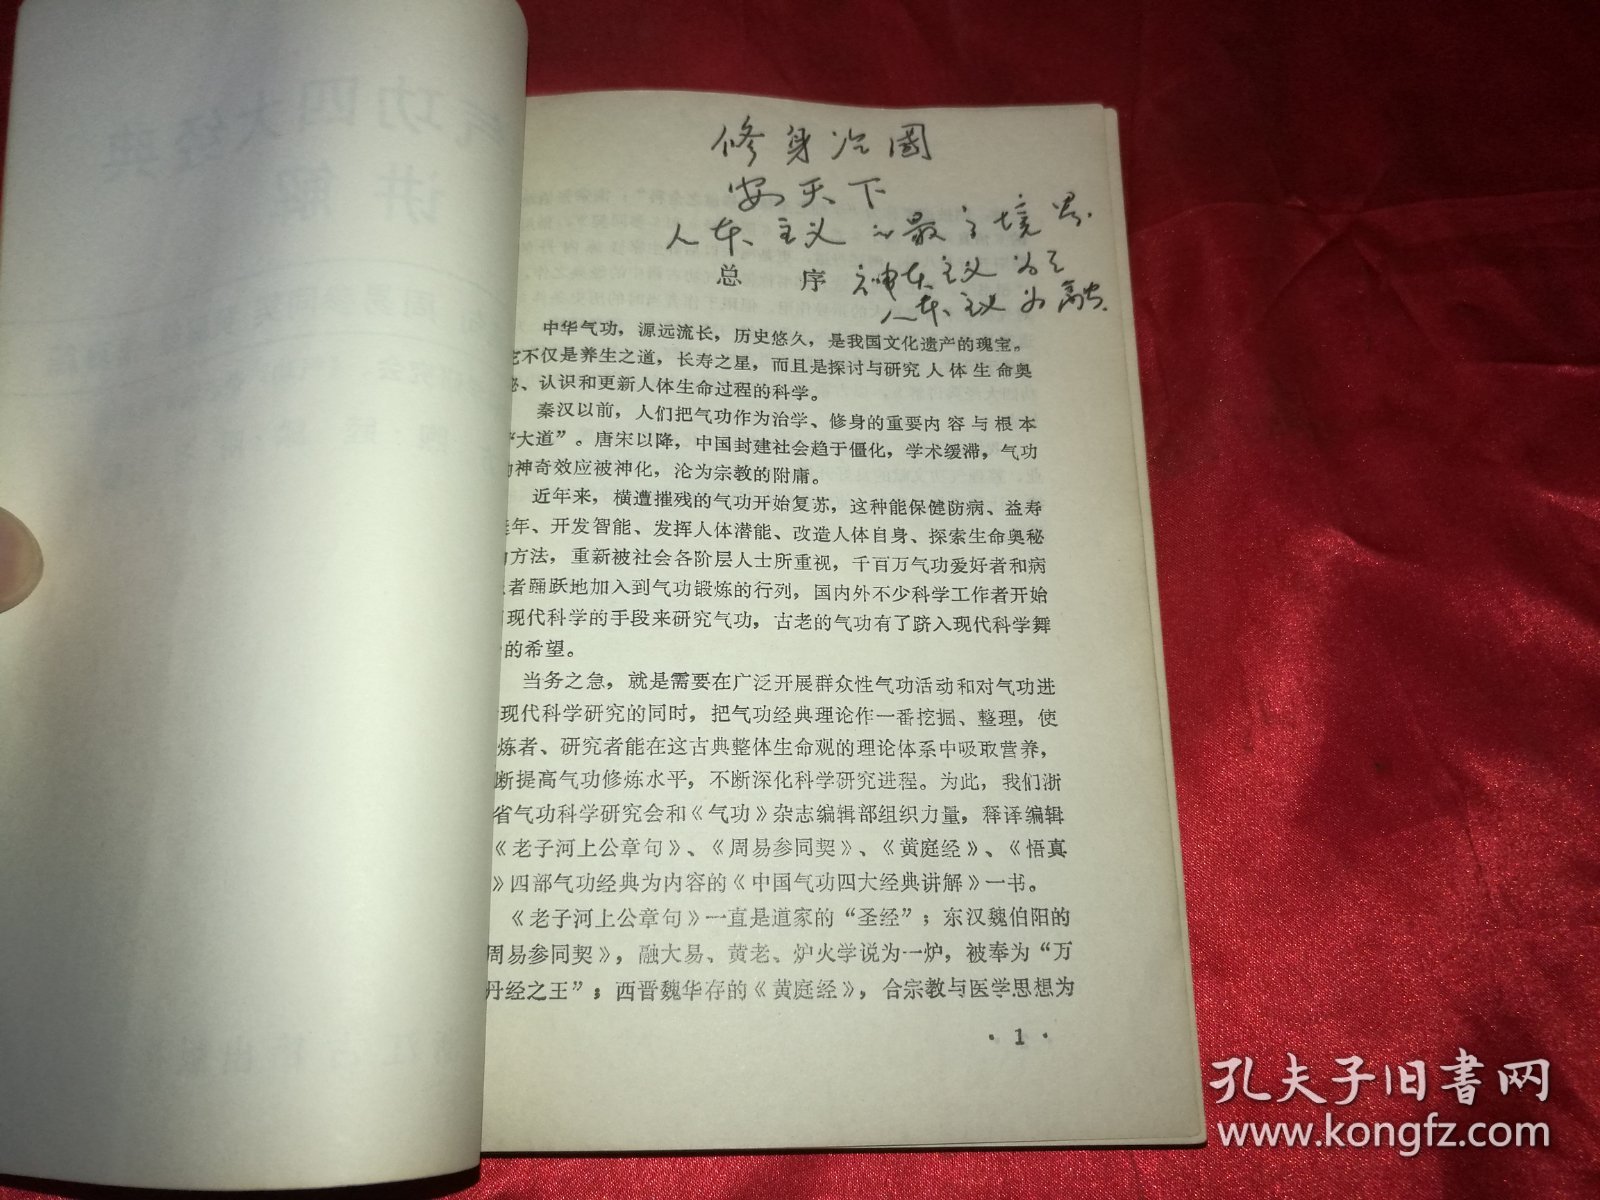 修身治国
安天下
人本主义心最高境界
总 序
神本主义为主
人本主义为融
中华气功，源远流长，历史悠久，是我国文化遗产的瑰宝。
它不仅是养生之道，长寿之星，而且是探讨与研究人体生命奥
秘、认识和更新人体生命过程的科学。
秦汉以前，人们把气功作为治学、修身的重要内容与根本
“大道”。唐宋以降，中国封建社会趋于僵化，学术缓滞，气功
的神奇效应被神化，沦为宗教的附庸。
近年来，横遭摧残的气功开始复苏，这种能保健防病、益寿
延年、开发智能、发挥人体潜能、改造人体自身、探索生命奥秘
的方法，重新被社会各阶层人士所重视，千百万气功爱好者和病
患者踊跃地加入到气功锻炼的行列，国内外不少科学工作者开始
用现代科学的手段来研究气功，古老的气功有了跻入现代科学舞
的希望。
当务之急，就是需要在广泛开展群众性气功活动和对气功进
现代科学研究的同时，把气功经典理论作一番挖掘、整理，使
炼者、研究者能在这古典整体生命观的理论体系中吸取营养，
断提高气功修炼水平，不断深化科学研究进程。为此，我们浙
省气功科学研究会和《气功》杂志编辑部组织力量，释译编辑
《老子河上公章句》、《周易参同契》、《黄庭经》、《悟真
》四部气功经典为内容的《中国气功四大经典讲解》一书。
《老子河上公章句》一直是道家的“圣经”；东汉魏伯阳的
周易参同契》，融大易、黄老、炉火学说为一炉，被奉为“万
丹经之王”；西晋魏华存的《黄庭经》，合宗教与医学思想为
· 1 ·
孔夫子旧书网
www.kongfz.com